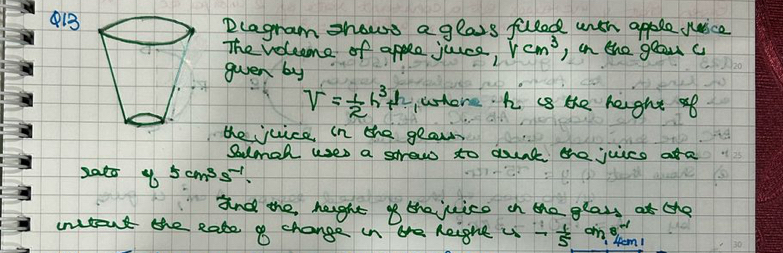 Q13
Diagram shows a glass filled with apple juice
The volume of apple juice, V cm³, in the glass is
given by
V = ½h³+h, where h is the height of
the juice in the glass
Salmah uses a straw to drink the juice at a
rate of 5 cm³ s⁻¹.
Find the height of the juice in the glass at the
instant the rate of change in the height is - 1/5 cm s⁻¹
4cm